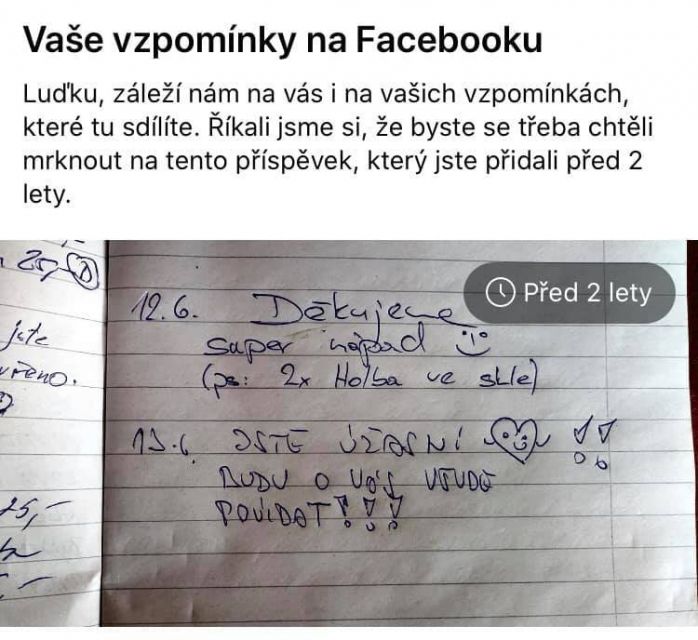 Vaše vzpomínky na Facebooku
Luďku, záleží nám na vás i na vašich vzpomínkách,
které tu sdílíte. Říkali jsme si, že byste se třeba chtěli
mrknout na tento příspěvek, který jste přidali před 2
lety.
Před 2 lety
25,-
12.6. Děkujeme
super nápad
jste
(ps: 2x Holba ve skle)
13.6. JSTE ÚŽASNÍ !!
BUDU O VÁS VŠUDE
POVÍDAT!!!
25,-